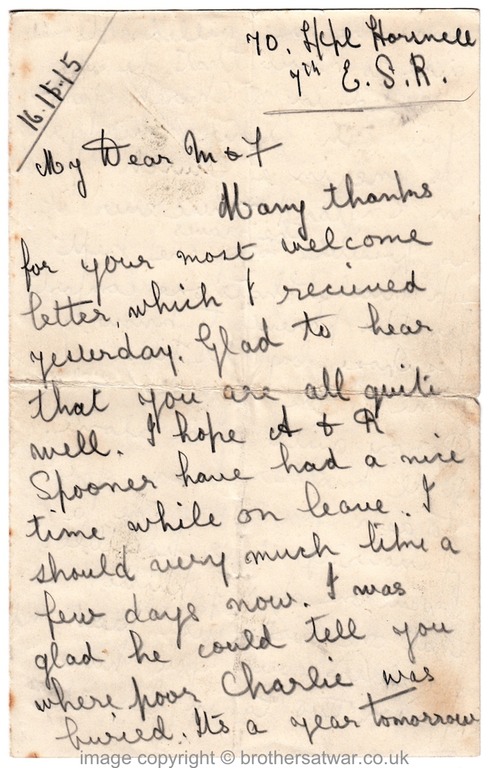 70. L/Cpl Horwell
7th E.S.R.
16.15.15
My Dear M & F
Many thanks
for your most welcome
letter, which I recieved
yesterday. Glad to hear
that you are all quite
well. I hope A & R
Spooner have had a nice
time while on leave. I
should very much like a
few days now. I was
glad he could tell you
where poor Charlie was
buried. Its a year tomorrow
image copyright © brothersatwar.co.uk